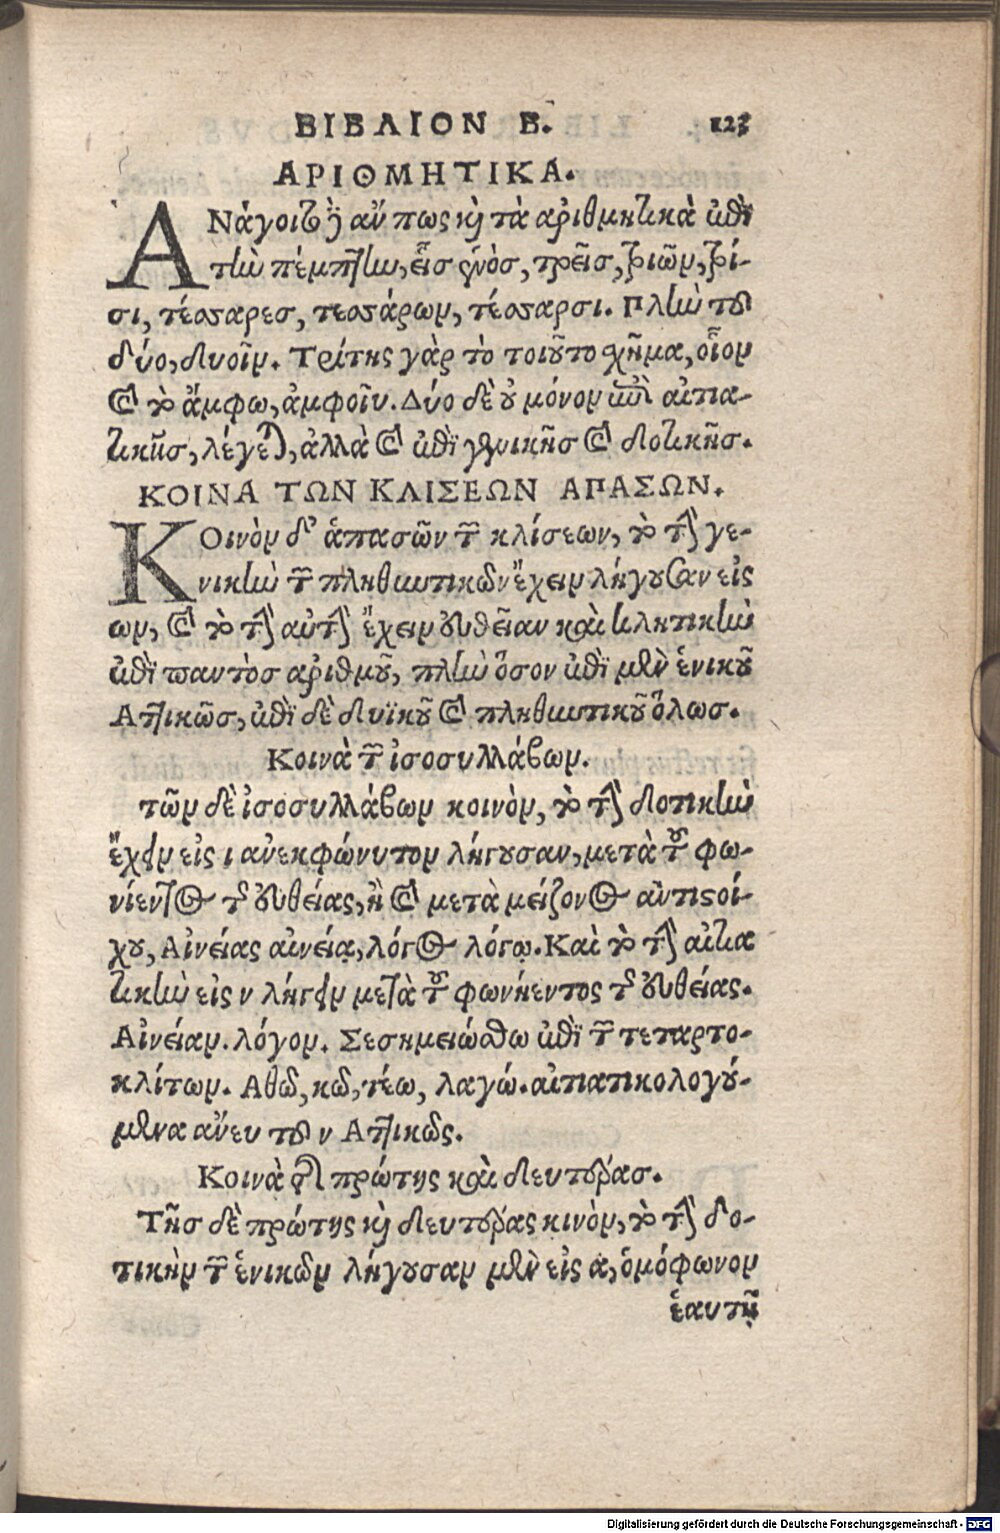 ΒΙΒΛΙΟΝ Β. 123
ΑΡΙΘΜΗΤΙΚΑ.
ΑΝάγοιτο δ' ἄν πως καὶ τὰ ἀριθμητικὰ ἐπὶ
τὴν πέμπτην, εἷς ἑνὸς, τρεῖς, τριῶν, τρί-
σι, τέσσαρες, τεσσάρων, τέσσαρσι. Πλὴν τοῦ
δύο, δυοῖν. Τρίτης γὰρ τὸ τοιοῦτο σχῆμα, οἷον
καὶ τὸ ἄμφω, ἀμφοῖν. Δύο δὲ οὐ μόνον ἐπὶ αἰτια-
τικῆς, λέγεται, ἀλλὰ καὶ ἐπὶ γενικῆς καὶ δοτικῆς.
ΚΟΙΝΑ ΤΩΝ ΚΛΙΣΕΩΝ ΑΠΑΣΩΝ.
ΚΟινὸν δ' ἁπασῶν τῶν κλίσεων, τὸ τὴν γε-
νικὴν τῶν πληθυντικῶν ἔχειν λήγουσαν εἰς
ων, καὶ τὸ τὴν αὐτὴν ἔχειν εὐθεῖαν καὶ κλητικὴν
ἐπὶ παντὸς ἀριθμοῦ, πλὴν ὅσον ἐπὶ μὲν ἑνικοῦ
Ἀττικῶς, ἐπὶ δὲ δυϊκοῦ καὶ πληθυντικοῦ ὅλως.
Κοινὰ τῶν ἰσοσυλλάβων.
τῶν δὲ ἰσοσυλλάβων κοινὸν, τὸ τὴν δοτικὴν
ἔχειν εἰς ι ἀνεκφώνητον λήγουσαν, μετὰ τοῦ φω-
νήεντος τῆς εὐθείας, ἢ καὶ μετὰ μείζονος ἀντιστοί-
χου, Αἰνείας αἰνείᾳ, λόγος λόγῳ. Καὶ τὸ τὴν αἰτια
τικὴν εἰς ν λήγειν μετὰ τοῦ φωνήεντος τῆς εὐθείας.
Αἰνείαν. λόγον. Σεσημειώσθω ἐπὶ τῶν τεταρτο-
κλίτων. Ἀθῶ, κῶ, τέω, λαγώ. αἰτιατικολογού-
μενα ἄνευ τοῦ ν Ἀττικῶς.
Κοινὰ τῆς πρώτης καὶ δευτέρας.
Τῆς δὲ πρώτης καὶ δευτέρας κινὸν, τὸ τὴν δο-
τικὴν τῶν ἑνικῶν λήγουσαν μὲν εἰς α, ὁμόφωνον
ἑαυτῇ
Digitalisierung gefördert durch die Deutsche Forschungsgemeinschaft - DFG